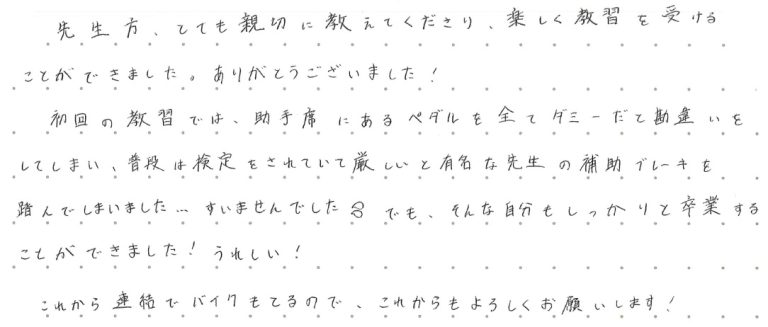 先生方、とても親切に教えてくださり、楽しく教習を受ける
ことができました。ありがとうございました！
初回の教習では、助手席にあるペダルを全てダミーだと勘違いを
してしまい、普段は検定をされていて厳しいと有名な先生の補助ブレーキを
踏んでしまいました… すいませんでした でも、そんな自分もしっかりと卒業する
ことができました！うれしい！
これから連結でバイクもてるので、これからもよろしくお願いします！